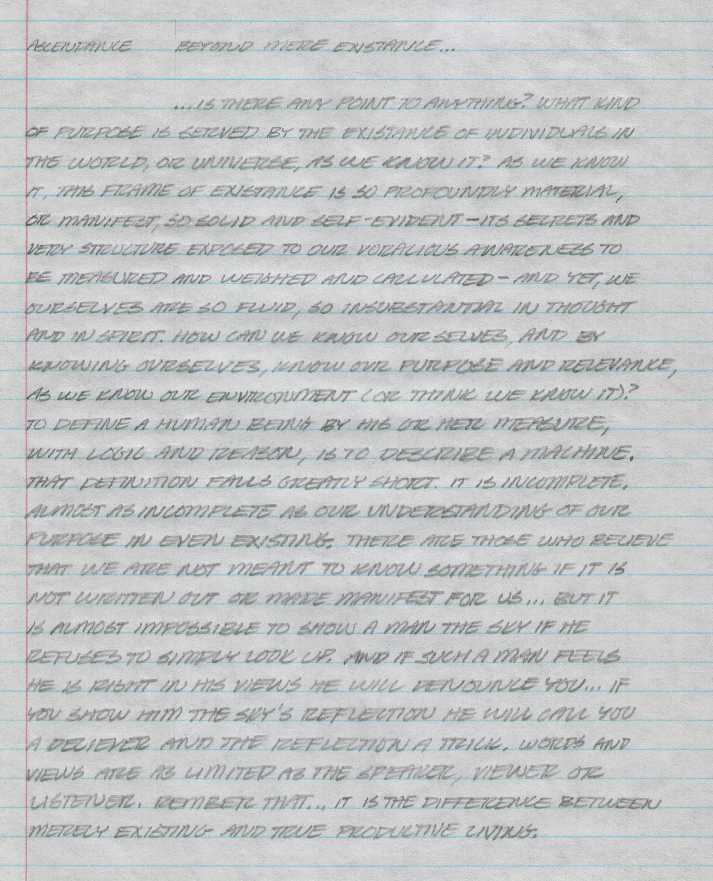 ASCENDANCE BEYOND MERE EXISTANCE...
...IS THERE ANY POINT TO ANYTHING? WHAT KIND
OF PURPOSE IS SERVED BY THE EXISTANCE OF INDIVIDUALS IN
THE WORLD, OR UNIVERSE, AS WE KNOW IT? AS WE KNOW
IT, THIS FRAME OF EXISTANCE IS SO PROFOUNDLY MATERIAL,
OR MANIFEST, SO SOLID AND SELF-EVIDENT - ITS SECRETS AND
VERY STRUCTURE EXPOSED TO OUR VORACIOUS AWARENESS TO
BE MEASURED AND WEIGHED AND CALCULATED - AND YET, WE
OURSELVES ARE SO FLUID, SO INSUBSTANTIAL IN THOUGHT
AND IN SPIRIT. HOW CAN WE KNOW OURSELVES, AND BY
KNOWING OURSELVES, KNOW OUR PURPOSE AND RELEVANCE,
AS WE KNOW OUR ENVIRONMENT (OR THINK WE KNOW IT)?
TO DEFINE A HUMAN BEING BY HIS OR HER MEASURE,
WITH LOGIC AND REASON, IS TO DESCRIBE A MACHINE.
THAT DEFINITION FALLS GREATLY SHORT. IT IS INCOMPLETE.
ALMOST AS INCOMPLETE AS OUR UNDERSTANDING OF OUR
PURPOSE IN EVEN EXISTING. THERE ARE THOSE WHO BELIEVE
THAT WE ARE NOT MEANT TO KNOW SOMETHING IF IT IS
NOT WRITTEN OUT OR MADE MANIFEST FOR US... BUT IT
IS ALMOST IMPOSSIBLE TO SHOW A MAN THE SKY IF HE
REFUSES TO SIMPLY LOOK UP. AND IF SUCH A MAN FEELS
HE IS RIGHT IN HIS VIEWS HE WILL DENOUNCE YOU... IF
YOU SHOW HIM THE SKY'S REFLECTION HE WILL CALL YOU
A DECIEVER AND THE REFLECTION A TRICK. WORDS AND
VIEWS ARE AS LIMITED AS THE SPEAKER, VIEWER OR
LISTENER. REMBER THAT... IT IS THE DIFFERENCE BETWEEN
MERELY EXISTING AND TRUE PRODUCTIVE LIVING.